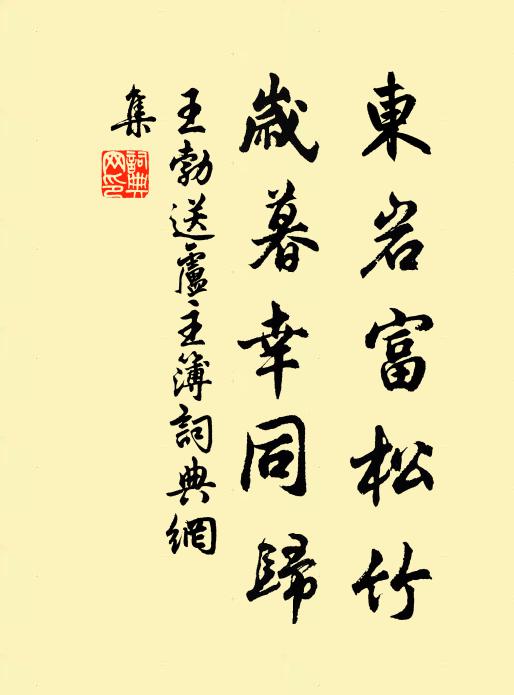 東岩富松竹
歲暮幸同歸
王勃送盧主簿詞典網
集
詞典网印